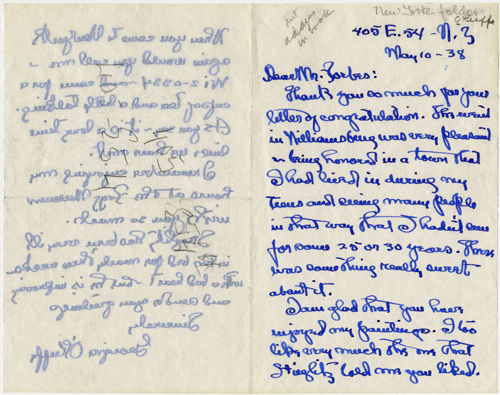 New York folder
O'Keeffe
put
address
in book
405 E. 54 - N.Y.
May 10 - 38
Dear Mr. Forbes:
Thank you so much for your
letter of congratulation. The event
in Williamsburg was very pleasant
being honored in a town that
I had lived in during my
Teens and seeing many people
in that way that I hadn't seen
for some 25 or 30 years. There
was something really sweet
about it.
I am glad that you have
enjoyed my paintings. I too
like very much the one that
Stieglitz told me you liked.
When you come to New York
again would you call me -
Wi 2-0534 - and come for a
cup of tea and a little talking.
As you see - it is a long time
I remember enjoying my
hours at the Fogg Museum
with you so much.
Stieglitz has been very ill
in bed for most three weeks.
and sends you greetings
Sincerely
Georgia O'Keeffe